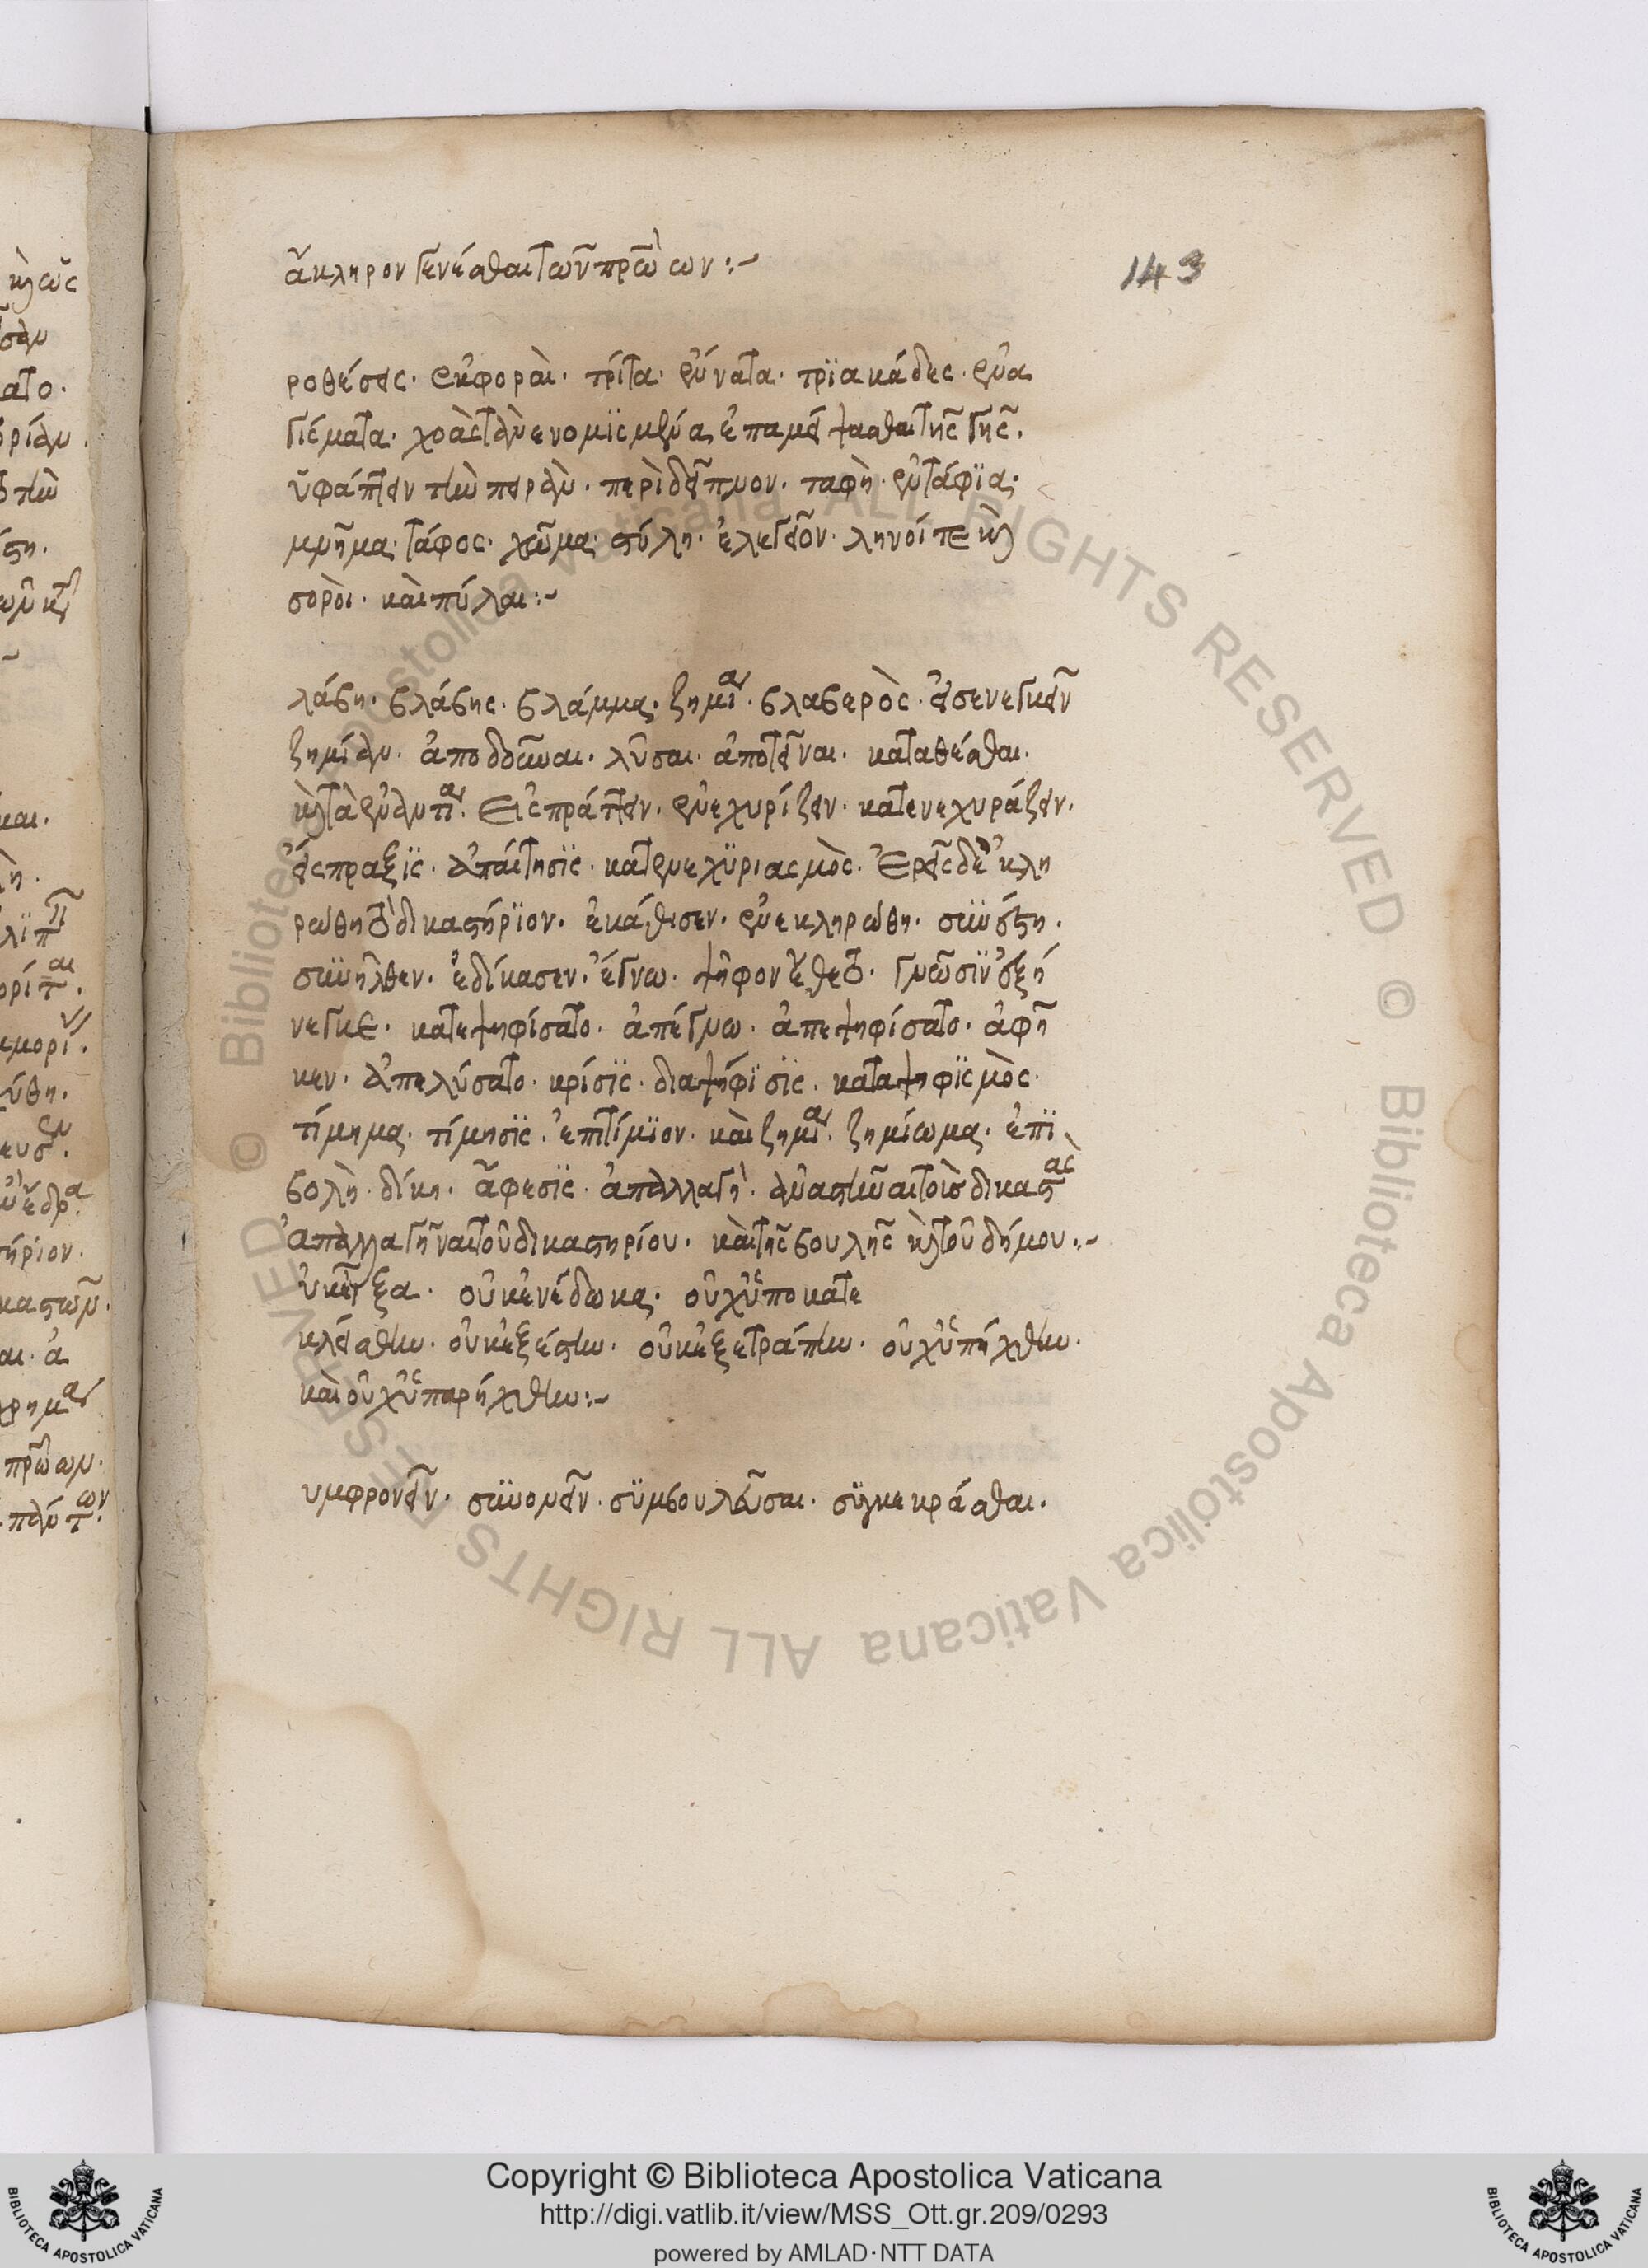 ἄκληρον γενέσθαι τῶν πρώων:~
143
ροθέσεις· ἐκφοραὶ· τρίτα· ἐννατα· τρϊακάδες· ἐνα
γίσματα· χοὰς τὰ νενομϊσμένα, ἐπαμείψασθαι τῆς γῆς.
ὑφάπτειν τὴν πυρὰν· περίδειπνον· ταφὴ· ἐντάφϊα·
μνῆμα· τάφος· χῶμα· στήλη· ἐλεγεῖον· ληνοί τε καὶ
σοροὶ· καὶ πύλαι:~
λάβη· βλάβης· βλάμμα· ζημία· βλαβερὸς· εἰσενεγκεῖν
ζημίαν· ἀποδοῦναι· λῦσαι· ἀποτεῖναι· καταθέσθαι·
καὶ τὰ ἐναντία· εἰσπράττειν· ἐνεχυρίζειν· κατενεχυράζειν·
εἴσπραξϊς· ἀπαίτησϊς· κατενεχϋριασμὸς· ἐρεῖς δὲ ἐκλη
ρώθη τὸ δικαστήρϊον· ἐκάθισεν· ἐνεκληρώθη· συνέστη·
συνῆλθεν· ἐδίκασεν· ἔγνω· ψῆφον ἔθετο· γνῶσϊν ἐξή
νεγκε· κατεψηφίσατο· ἀπέγνω· ἀπεψηφίσατο· ἀφῆ
κεν· ἀπελύσατο· κρίσϊς· διαψήφϊσϊς· καταψηφϊσμὸς·
τίμημα· τίμησϊς· ἐπιτίμϊον· καὶ ζημία· ζημίωμα· ἐπϊ
βολὴ· δίκη· ἄφεσϊς· ἀπαλλαγὴ· ἀναστῆναι τοὺς δικαστὰς
ἀπαλλαγῆναι τοῦ δικαστηρίου· καὶ τῆς βουλῆς καὶ τοῦ δήμου:~
ὐκ εἶξα· οὐκ ἐνέδωκα· οὐχ ὑποκατε
κλείσθην· οὐκ ἐξέστην· οὐκ ἐξετράπην· οὐχ ὑπήχθην·
καὶ οὐχ ὑπαρήχθην:~
υμφρονεῖν· συνομεῖν· σϋμβουλεῦσαι· σϋγκεκράσθαι·
Copyright © Biblioteca Apostolica Vaticana
http://digi.vatlib.it/view/MSS_Ott.gr.209/0293
powered by AMLAD·NTT DATA